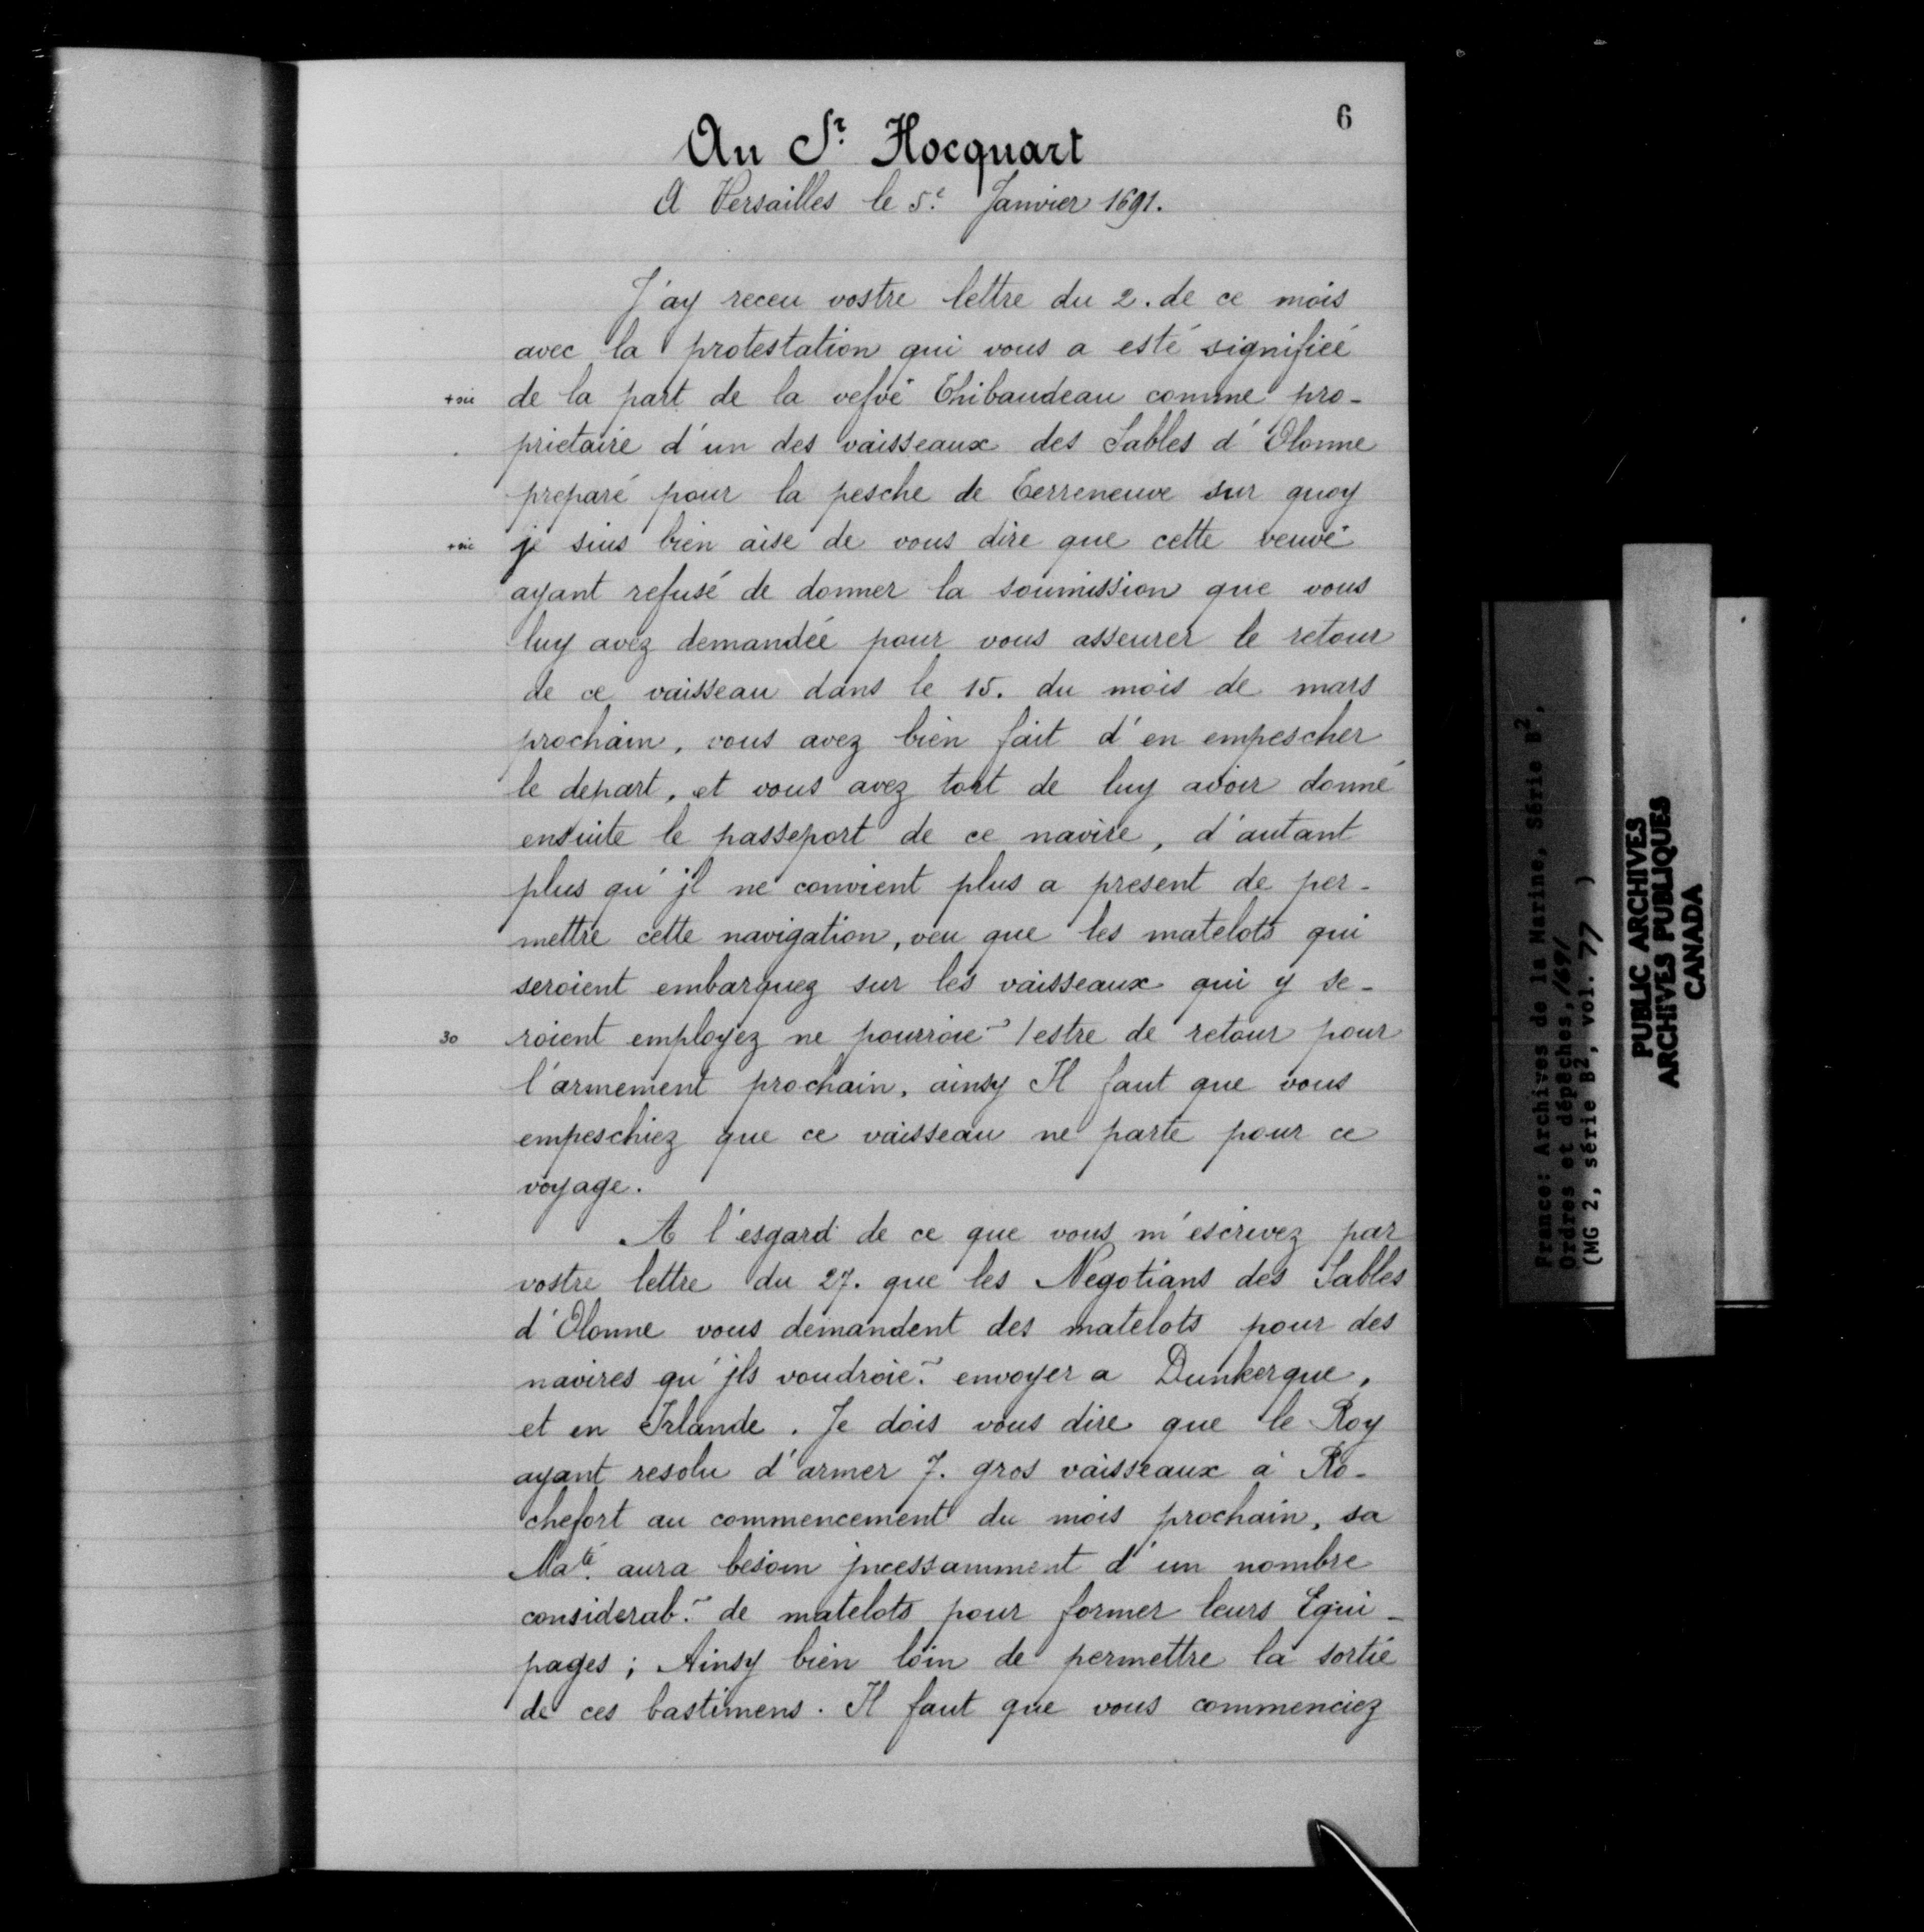 6
Au Sr. Hocquart
A Versailles le 5e. Janvier 1691.
J'ay receu vostre lettre du 2. de ce mois
avec la protestation qui vous a esté signifiée
+sic de la part de la vefve Thibaudeau comme pro-
prietaire d'un des vaisseaux des Sables d'Olonne
preparé pour la pesche de Terreneuve sur quoy
+sic je suis bien aise de vous dire que cette veuve
ayant refusé de donner la soumission que vous
luy avez demandée pour vous asseurer le retour
de ce vaisseau dans le 15. du mois de mars
prochain, vous avez bien fait d'en empescher
le depart, et vous avez tort de luy avoir donné
ensuite le passeport de ce navire, d'autant
plus qu'jl ne convient plus a present de per-
mettre cette navigation, veu que les matelots qui
seroient embarquez sur les vaisseaux qui y se-
30 roient employez ne pourroie~ / estre de retour pour
l'armement prochain, ainsy Il faut que vous
empeschiez que ce vaisseau ne parte pour ce
voyage.
A l'esgard de ce que vous m'escrivez par
vostre lettre du 27. que les Negotians des Sables
d'Olonne vous demandent des matelots pour des
navires qu'jls voudroie~. envoyer a Dunkerque,
et en Irlande. Je dois vous dire que le Roy
ayant resolu d'armer 7. gros vaisseaux à Ro-
chefort au commencement du mois prochain, sa
Maté. aura besoin jncessamment d'un nombre
considerab.~ de matelots pour former leurs Equi-
pages; Ainsy bien loin de permettre la sortie
de ces bastimens. Il faut que vous commenciez
France: Archives de la Marine, Série B2,
Ordres et dépêches, 1691
(MG 2, série B2, vol. 77 )
PUBLIC ARCHIVES
ARCHIVES PUBLIQUES
CANADA